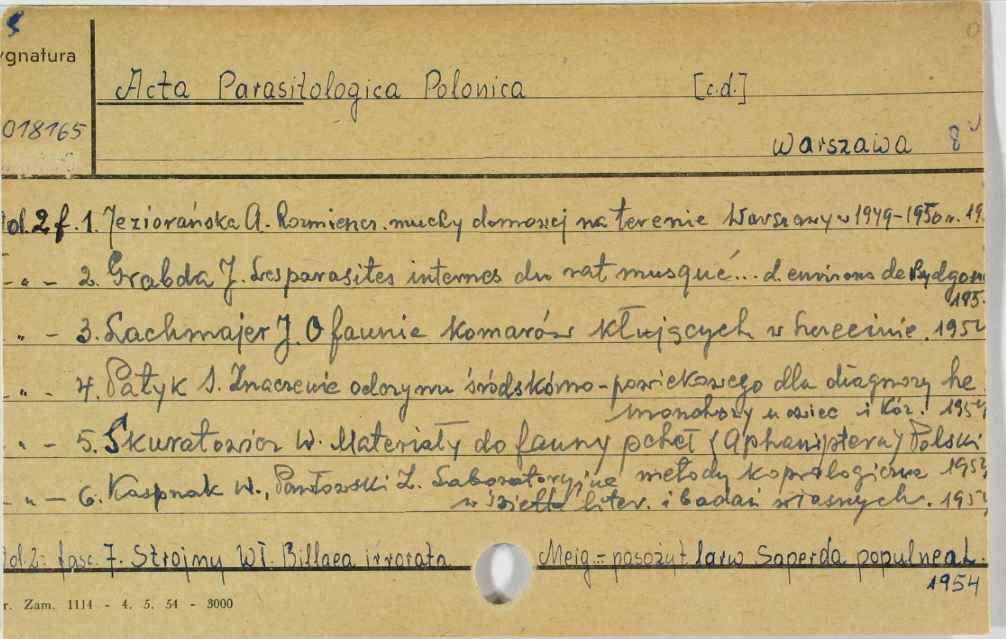 ygnatura
Acta Parasitologica Polonica [c.d.]
018165
Warszawa 8°
ol. 2 f. 1. Jeziorańska A. Rozmieszcz. muchy domowej na terenie Warszawy w 1949-1950 r. 19
- „ - 2. Grabda J. Les parasites internes du rat musqué... d. environs de Bydgosz
195
„ - 3. Lachmajer J. O faunie komarów kłujących w Szczecinie. 1954
- „ - 4. Patyk S. Znaczenie odczynu śródskórno-powiekowego dla diagnozy he
monchozy u owiec i kóz. 1954
- „ - 5. Skuratowicz W. Materiały do fauny pcheł (Aphaniptera) Polski
1954
- „ - 6. Kasprzak W., Pawłowski Z. Laboratoryjne metody koprologiczne
w świetle liter. i badań własnych. 1954
ol. 2. fasc. 7. Strojny Wł. Billaea irrorata Meig. - pasożyt larw Saperda populnea L.
1954
r. Zam. 1114 - 4. 5. 54 - 3000